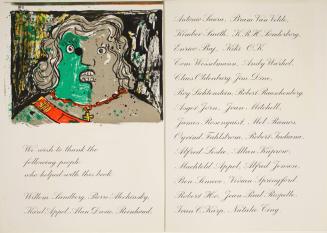 We wish to thank the
following people
who helped with this book
Willem Sandberg, Pierre Alechinsky,
Karel Appel, Alan Davie, Reinhoud,
Antonio Saura, Bram Van Velde,
Kimber Smith, K.R.H. Sonderborg,
Enrico Baj, Kiki O.K.
Tom Wesselmann, Andy Warhol,
Claes Oldenburg, Jim Dine,
Roy Lichtenstein, Robert Rauschenberg,
Asger Jorn, Joan Mitchell,
James Rosenquist, Mel Ramos,
Oyvind Fahlstrom, Robert Indiana,
Alfred Leslie, Allan Kaprow,
Machteld Appel, Alfred Jensen,
Ben Simeon, Vivian Springford
Robert Ho, Jean Paul Riopelle
Ivan C. Karp, Natalie Ting